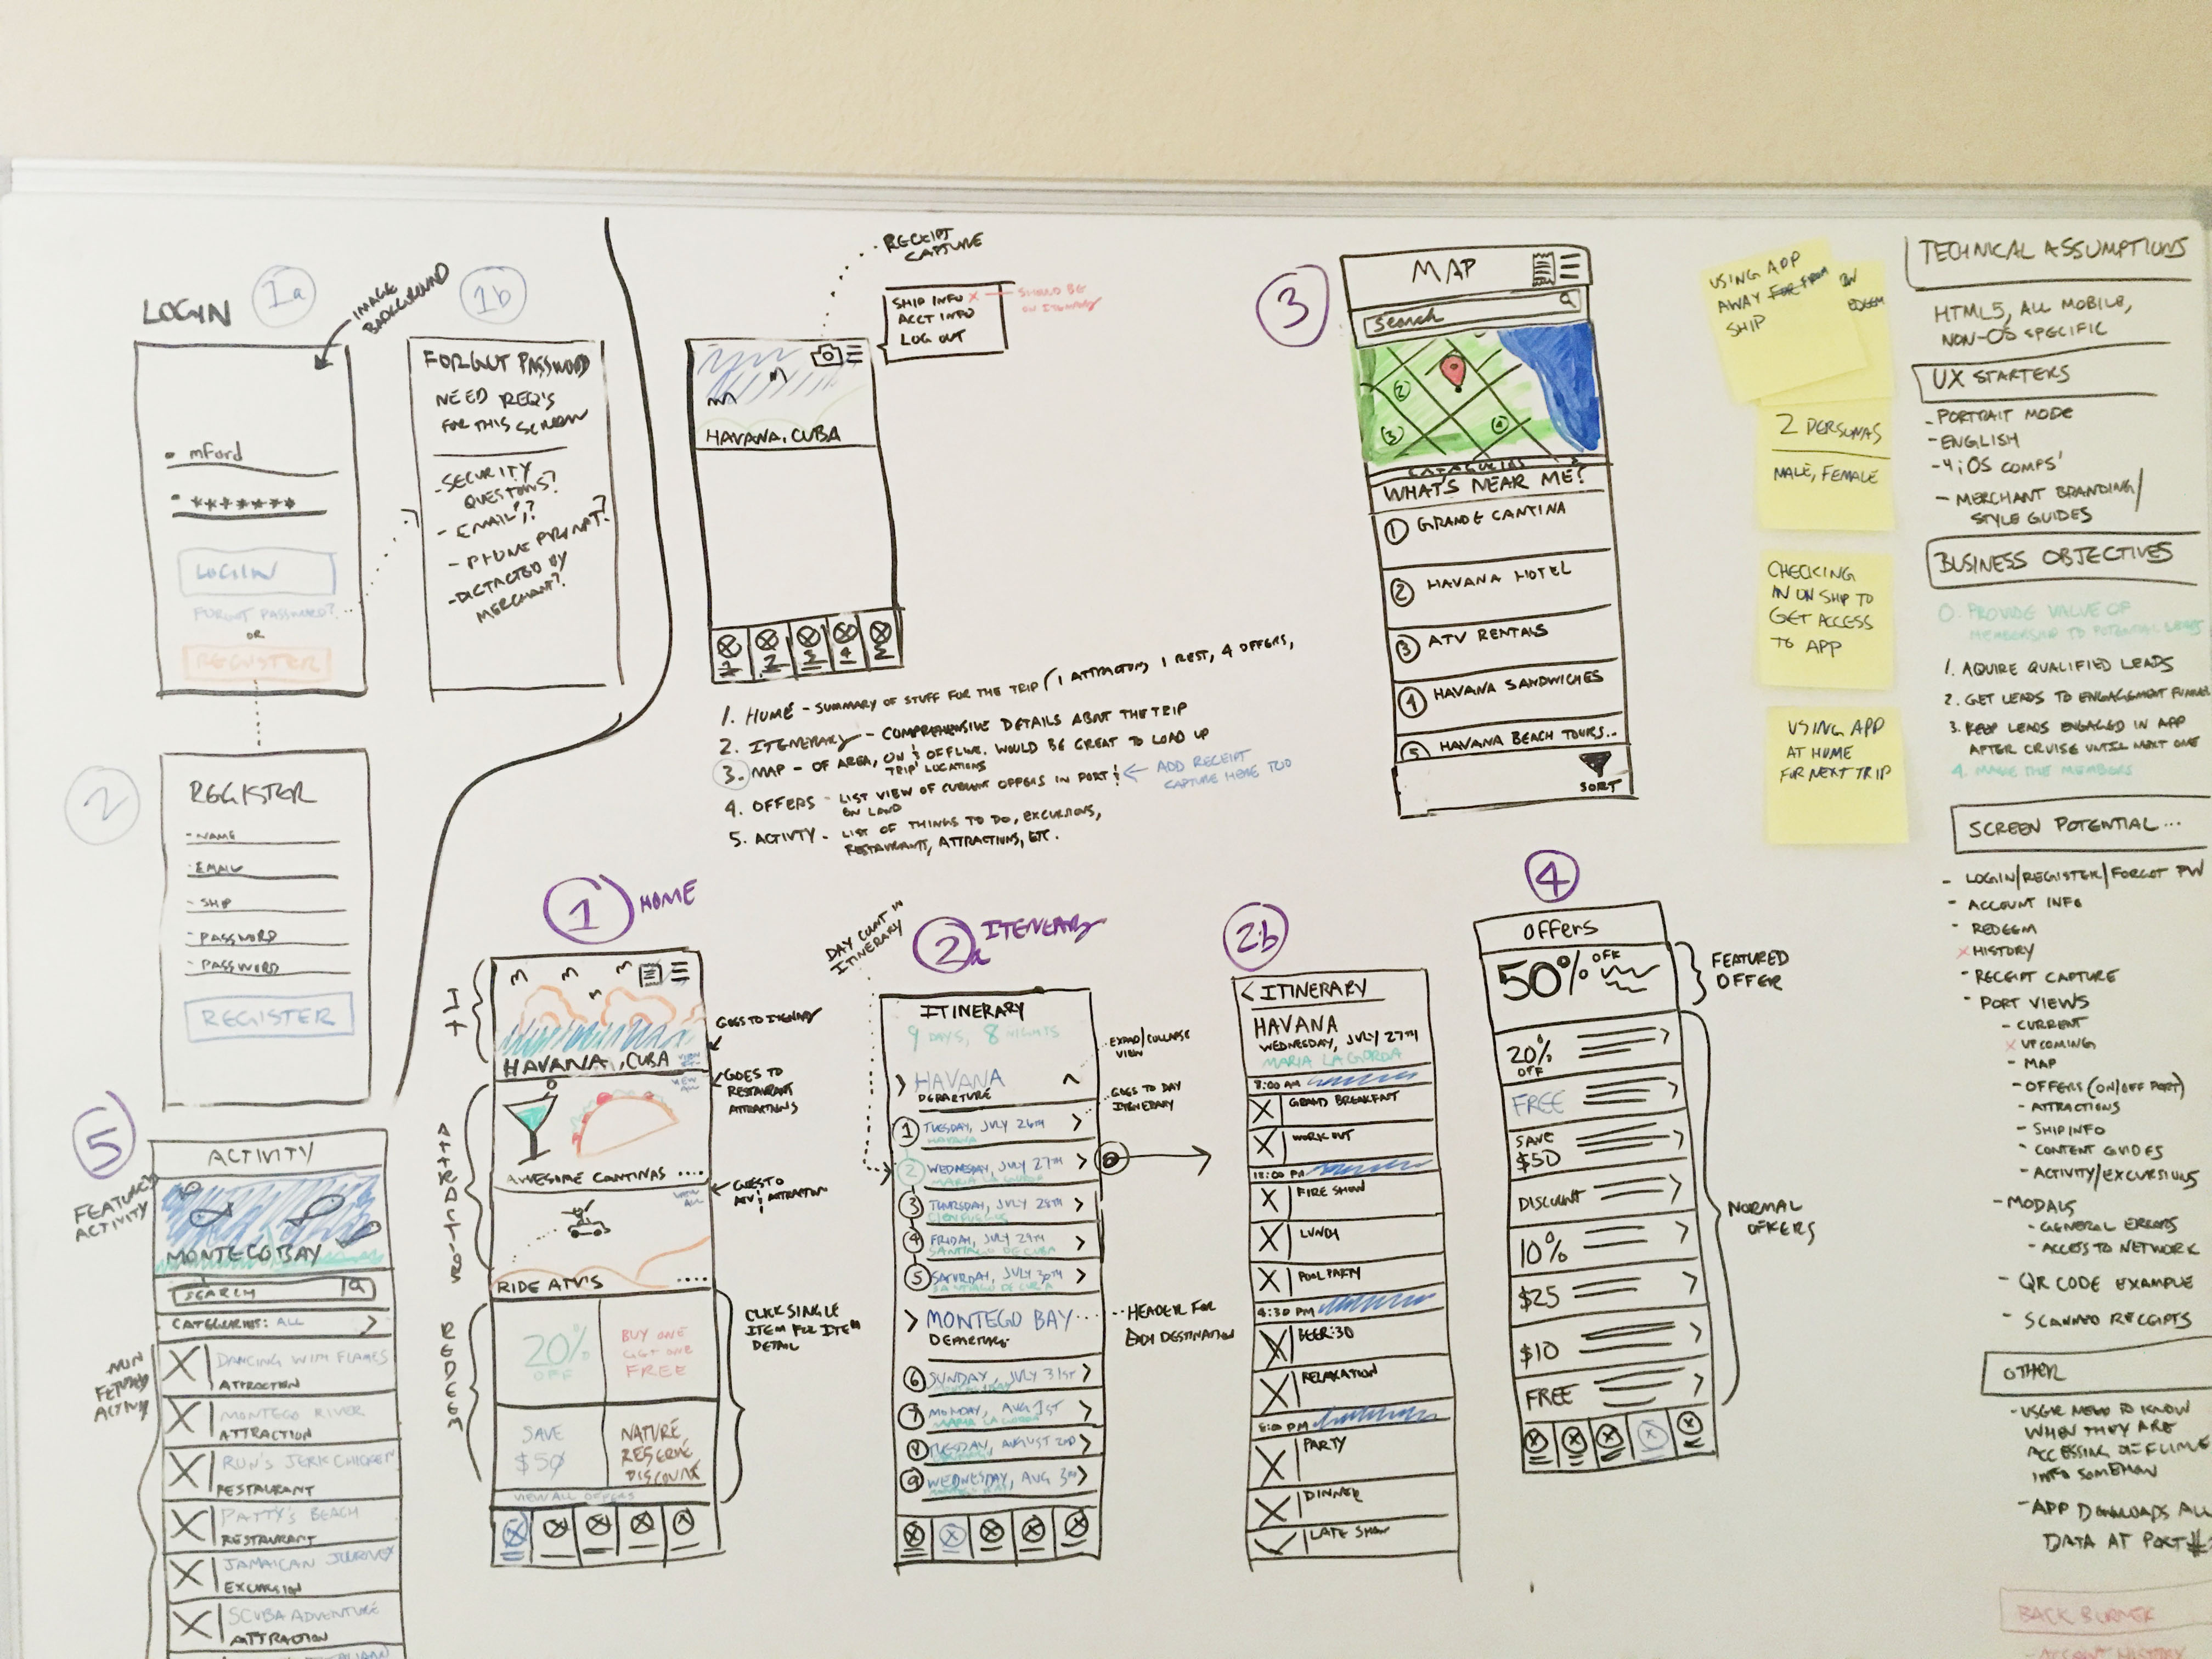 LOGIN
1a
IMAGE
BACKGROUND
mford
*******
LOGIN
FORGOT PASSWORD?
OR
REGISTER
1b
FORGOT PASSWORD
NEED REQ'S
FOR THIS SCREEN
- SECURITY
QUESTIONS?
- EMAIL?
- PHONE PROMPT?
- DICTACTED BY
MERCHANT?
2
REGISTER
- NAME
- EMAIL
- SHIP
- PASSWORD
- PASSWORD
REGISTER
RECEIPT
CAPTURE
SHIP INFO X
ACCT INFO
LOG OUT
SHOULD BE
ON ITENERARY
HAVANA, CUBA
1
2
3
4
5
1. HOME - SUMMARY OF STUFF FOR THE TRIP (1 ATTRACTION, 1 REST, 4 OFFERS,
2. ITENERARY - COMPREHENSIVE DETAILS ABOUT THE TRIP
3. MAP - OF AREA, ON & OFFLINE. WOULD BE GREAT TO LOAD UP
TRIP LOCATIONS
4. OFFERS - LIST VIEW OF CURRENT OFFERS IN PORT &
ON LAND
ADD RECEIPT
CAPTURE HERE TOO
5. ACTIVTY - LIST OF THINGS TO DO, EXCURSIONS,
RESTAURANTS, ATTRACTIONS, ETC.
3
MAP
Search
2
3
4
CATAGORIES
WHAT'S NEAR ME?
1 GRANDE CANTINA
2 HAVANA HOTEL
3 ATV RENTALS
4 HAVANA SANDWICHES
5 HAVANA BEACH TOURS..
SORT
USING APP
AWAY FROM
SHIP
2 PERSONAS
MALE, FEMALE
CHECKING
IN ON SHIP TO
GET ACCESS
TO APP
USING APP
AT HOME
FOR NEXT TRIP
TECHNICAL ASSUMPTIONS
HTML5, ALL MOBILE,
NON-OS SPECIFIC
UX STARTERS
- PORTRAIT MODE
- ENGLISH
- 4 iOS COMPS'
- MERCHANT BRANDING/
STYLE GUIDES
BUSINESS OBJECTIVES
0. PROVIDE VALUE OF
MEMBERSHIP TO POTENTIAL LEADS
1. AQUIRE QUALIFIED LEADS
2. GET LEADS TO ENGAGEMENT FUNNEL
3. KEEP LEADS ENGAGED IN APP
AFTER CRUISE UNTIL NEXT ONE
4. MAKE THE MEMBERS
SCREEN POTENTIAL...
- LOGIN/REGISTER/FORGOT PW
- ACCOUNT INFO
- REDEEM
X HISTORY
- RECEIPT CAPTURE
- PORT VIEWS
- CURRENT
X UPCOMING
- MAP
- OFFERS (ON/OFF PORT)
- ATTRACTIONS
- SHIP INFO
- CONTENT GUIDES
- ACTIVITY/EXCURSIONS
- MODALS
- GENERAL ERRORS
- ACCESS TO NETWORK
- QR CODE EXAMPLE
- SCANNED RECEIPTS
OTHER
- USER NEED TO KNOW
WHEN THEY ARE
ACCESSING OFFLINE
INFO SOMEHOW
- APP DOWNLOADS ALL
DATA AT PORT #
BACK BURNER
- ACCOUNT HISTORY
5
FEATURED
ACTIVITY
ACTIVITY
MONTEGO BAY
SEARCH
CATEGORIES: ALL >
NON
FEATURED
ACTIVITY
DANCING WITH FLAMES
ATTRACTION
MONTEGO RIVER
ATTRACTION
RUN'S JERK CHICKEN
RESTAURANT
PATTY'S BEACH
RESTAURANT
JAMAICAN JOURNEY
EXCURSION
SCUBA ADVENTURE
ATTRACTION
ITALIAN
1 HOME
HAVANA, CUBA
GOES TO ITENERARY
ATTRACTIONS
VIEW
ALL
GOES TO
RESTAURANT
ATTRACTIONS
AWESOME CANTINAS ....
VIEW
ALL
GOES TO
ATV ATTRACTION
RIDE ATV'S ....
REDEEM
20%
OFF
BUY ONE
GET ONE
FREE
SAVE
$50
NATURE
RESERVE
DISCOUNT
VIEW ALL OFFERS
CLICK SINGLE
ITEM FOR ITEM
DETAIL
DAY COUNT IN
ITINERARY
2a ITENERARY
ITINERARY
9 DAYS, 8 NIGHTS
> HAVANA
DEPARTURE
EXPAND/COLLAPSE
VIEW
GOES TO DAY
ITENERARY
1 TUESDAY, JULY 26TH >
HAVANA
2 WEDNESDAY, JULY 27TH >
MARIA LA GORDA
3 THURSDAY, JULY 28TH >
CIENFUEGOS
4 FRIDAY, JULY 29TH >
SANTIAGO DE CUBA
5 SATURDAY, JULY 30TH >
SANTIAGO DE CUBA
> MONTEGO BAY
DEPARTURE
HEADER FOR
DESTINATION
6 SUNDAY, JULY 31ST >
7 MONDAY, AUG 1ST >
MARIA LA GORDA
8 TUESDAY, AUGUST 2ND >
9 WEDNESDAY, AUG 3RD >
2b
< ITINERARY
HAVANA
WEDNESDAY, JULY 27TH
MARIA LA GORDA
8:00 AM
GRAND BREAKFAST
WORK OUT
12:00 PM
FIRE SHOW
LUNCH
POOL PARTY
4:30 PM
BEER:30
RELAXATION
8:00 PM
PARTY
DINNER
LATE SHOW
4
Offers
50% OFF
FEATURED
OFFER
20%
OFF
FREE
SAVE
$50
DISCOUNT
10%
$25
$10
FREE
NORMAL
OFFERS